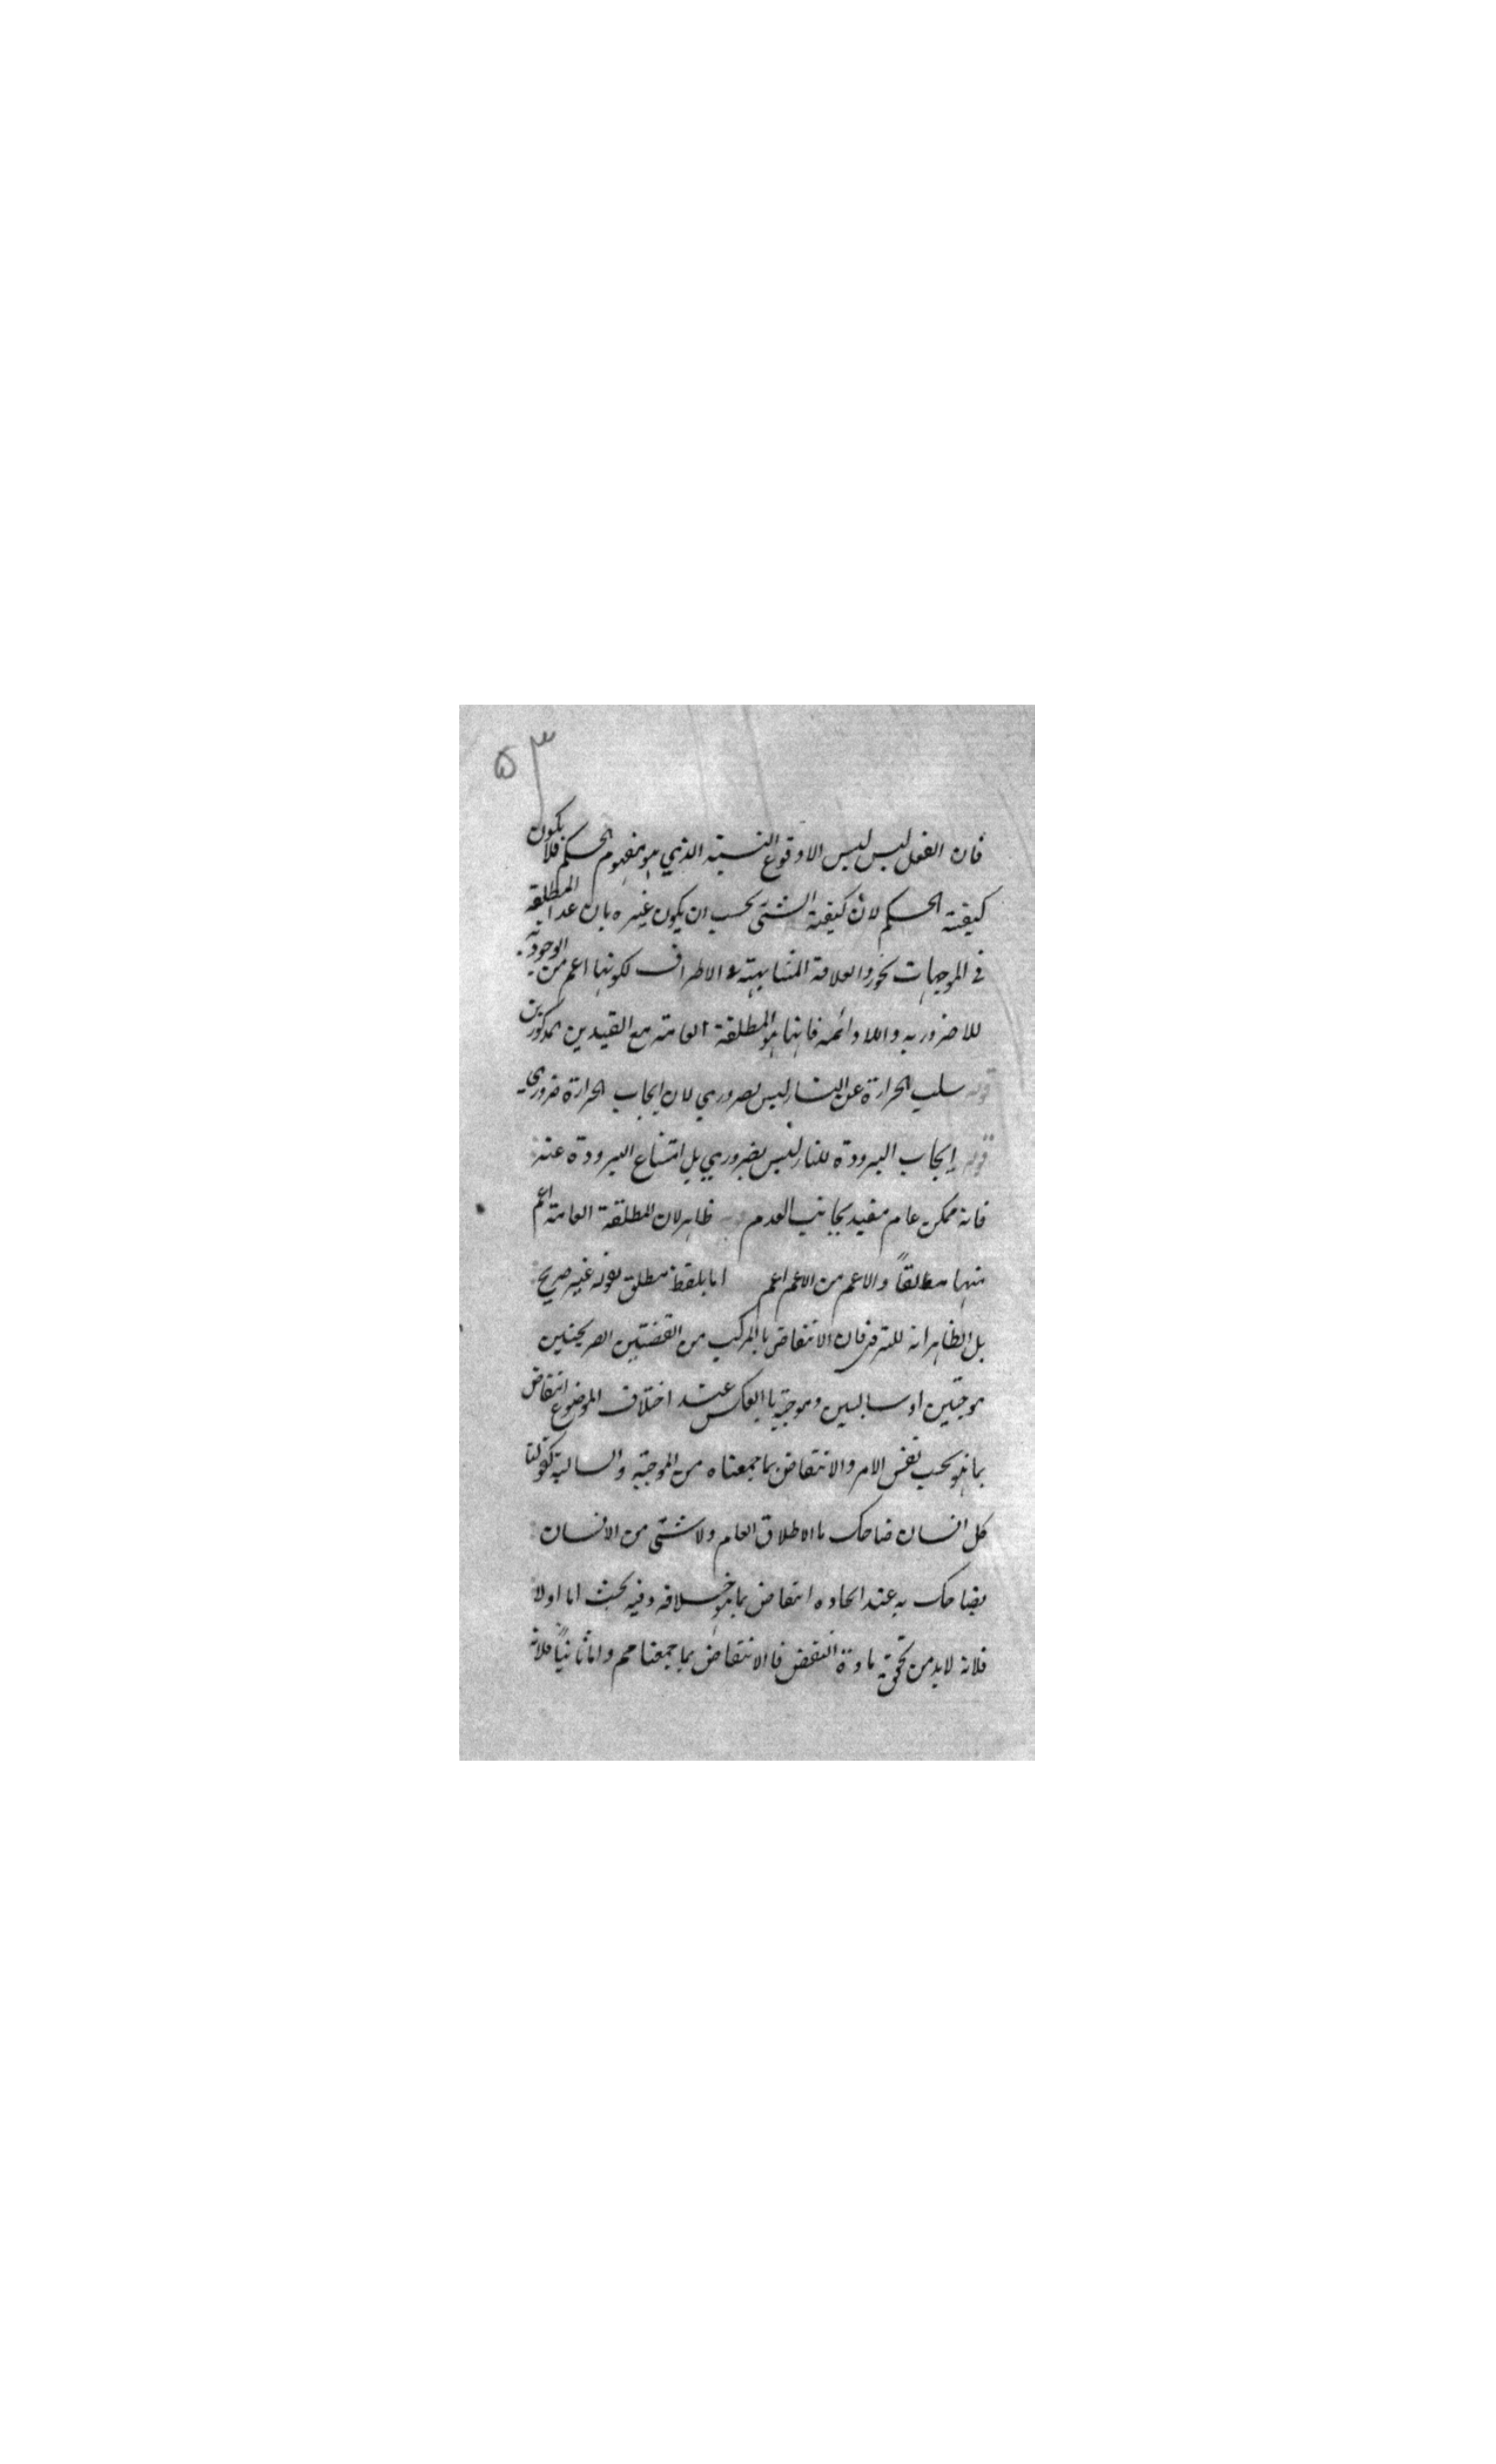 ٥٣
فان الفعل ليس ليس الا وقوع النسبة الذي هو مفهوم الحكم فلا يكون
كيفية الحكم لان كيفية الشئ يجب ان يكون غيره بان عد المطلقة
في الموجهات تجوز والعلاقة المشابهة الاطراف لكونها اعم من الوجودية
للاضرورية واللادائمة فانها هو المطلقة العامة مع القيدين المذكورين
قوله سلب الحرارة عن النار ليس بضروري لان ايجاب الحرارة ضروري
قوله ايجاب البرودة للنار ليس بضروري بل امتناع البرودة عنه
فانه ممكن عام مقيد بجانب العدم ظاهر لان المطلقة العامة اعم
منها مطلقاً والاعم من الاعم اعم اما بلفظ مطلق قوله غير صريح
بل الظاهر انه للترقي فان الانتقاض بالمركب من القضيتين الصريحتين
موجبتين او سالبتين وموجبة بالعكس عند اختلاف الموضوع انتقاض
بما هو بحسب نفس الامر والانتقاض بما جمعناه من الموجبة والسالبة كقولنا
كل انسان ضاحك بالاطلاق العام ولا شئ من الانسان
بضاحك به عند اتحاده انتقاض بما هو خلافه وفيه بحث اما اولا
فلانه لابد من تحقق مادة النقض فالانتقاض بما جمعنا مم واما ثانياً فلانه